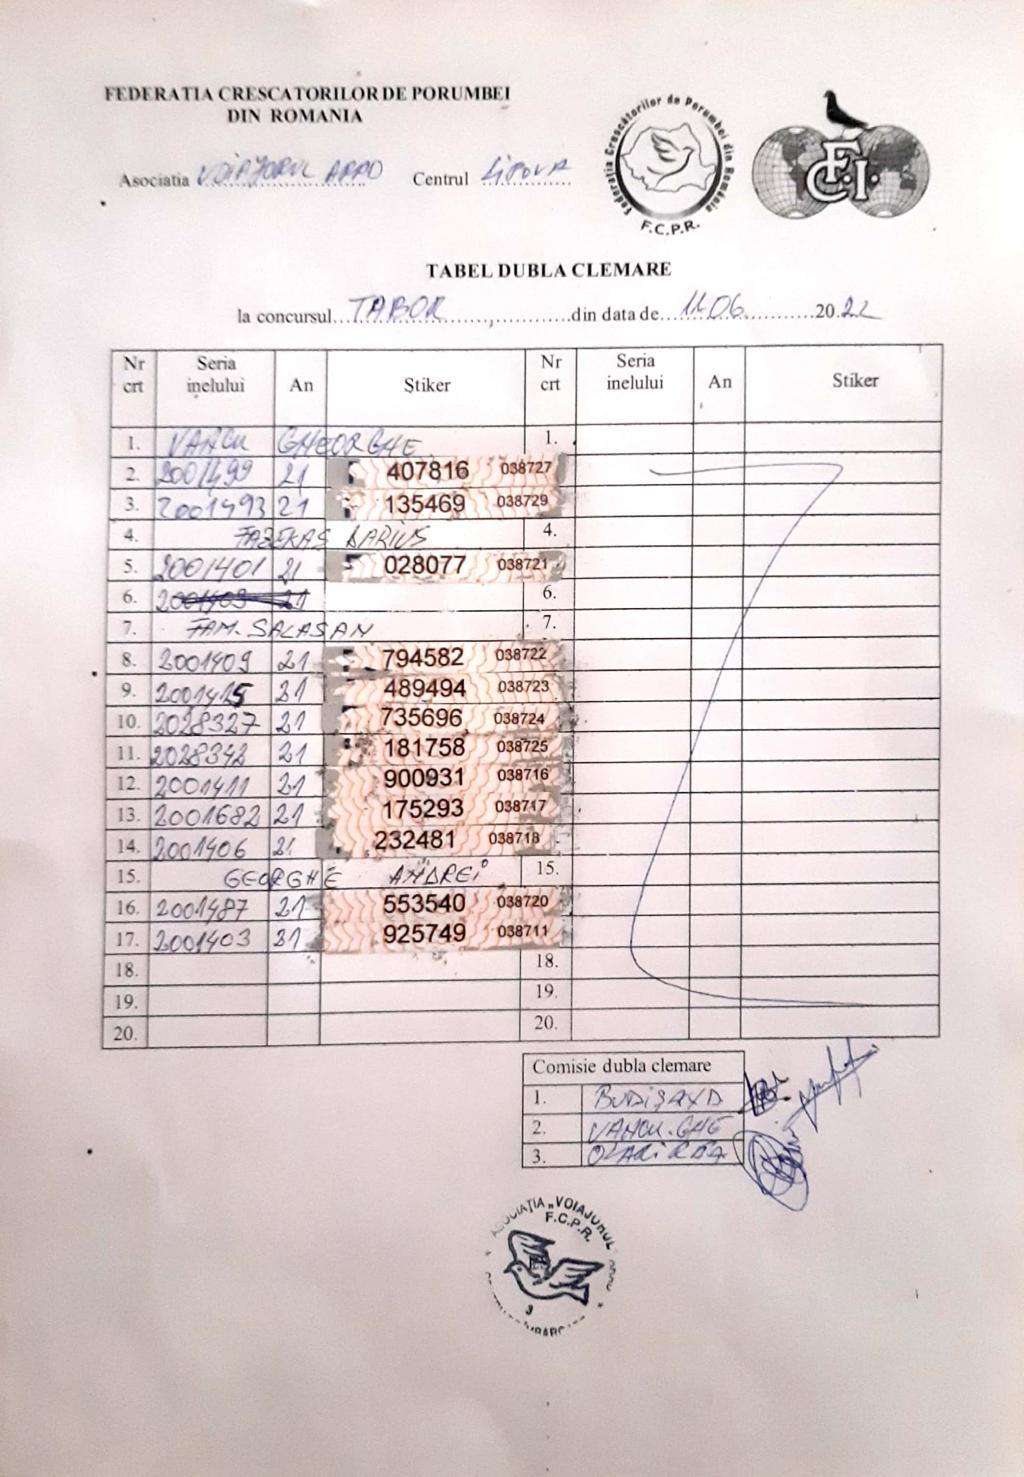 FEDERATIA CRESCATORILOR DE PORUMBEI
DIN ROMANIA
Asociatia VOIAJORUL ARAD Centrul Lipova
Federatia Crescătorilor de Porumbei din România
F.C.P.R.
F.C.I.
TABEL DUBLA CLEMARE
la concursul TABOR din data de 11.06 2022
Nr crt Seria inelului An Știker Nr crt Seria inelului An Stiker
1. VANCU GHEORGHE 1.
2. 2001499 21 407816 038727
3. 2001493 21 135469 038729
4. FAZEKAS DARIUS 4.
5. 2001401 21 028077 038721
6. 2001403 21 6.
7. FAM. SALASAN 7.
8. 2001409 21 794582 038722
9. 2001415 21 489494 038723
10. 2028327 21 735696 038724
11. 2028342 21 181758 038725
12. 2001411 21 900931 038716
13. 2001682 21 175293 038717
14. 2001406 21 232481 038718
15. GEORGHE ANDREI 15.
16. 2001487 21 553540 038720
17. 2001403 21 925749 038711
18. 18.
19. 19.
20. 20.
Comisie dubla clemare
1.
2. VANCU. GHE
3.
ASOCIAȚIA „VOIAJORUL
F.C.P.R.
3